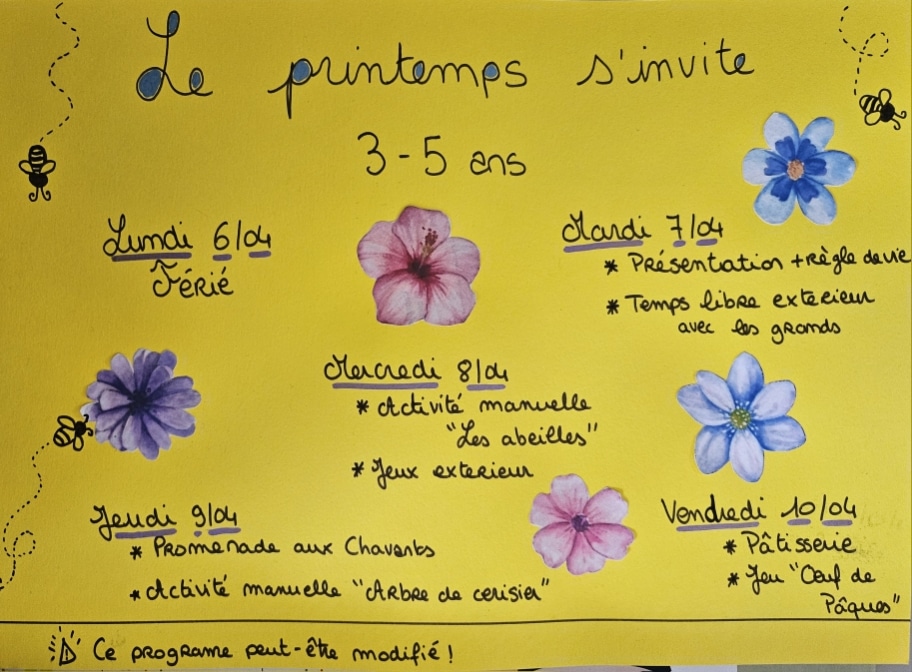 Le printemps s'invite
3-5 ans
Lundi 6/04
Férié
Mardi 7/04
* Présentation + règle de vie
* Temps libre exterieur
avec les grands
Mercredi 8/04
* Activité manuelle
"Les abeilles"
* Jeux exterieur
Jeudi 9/04
* Promenade aux Chavants
* Activité manuelle "Arbre de cerisier"
Vendredi 10/04
* Pâtisserie
* Jeu "Oeuf de
Pâques"
Ce programe peut-être modifié !